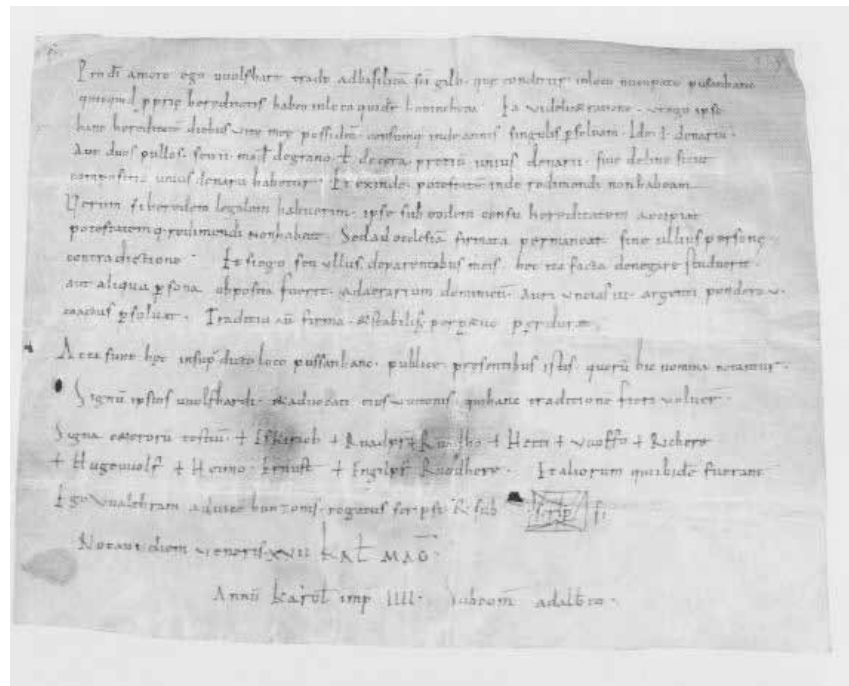 Pro dī amore ego uuolfhart trado ad basilicā sc̄i galli que conditur in loco nuncupato pussinhanc
quicquid ꝓprię hereditatis habeo in loco quidē
hanc hereditatē diebus vitę meę possideā censumq inde annis singulis ꝑsoluam · Id ē · I · denariū ·
Aut duos pullos · seu · degrano · et decera pretiū unius denarii · siue delino sicut
compositio unius denarii habetur · Et exinde potestatē inde redimendi non habeam
Verum si heredem legalem habuerim · ipse sub eodem censu hereditatem accipiat
potestatemq redimendi non habeat · Sed ad ecclesiā firmata permaneat sine ullius personę
contradictione · Et si ego seu ullus de parentabus meis · hoc ita facta denegare studuerit ·
aut aliqua ꝑsona opposita fuerit · ad aerarium dominicū · auri uncias III · argenti pondera V ·
coactus ꝑsoluat · Traditio aū firma & stabilis perpetuo perduret
Acta sunt hęc in suꝓ dicto loco pussinhanc · publice · presentibus istis · quorū hic nomina notantur ·
Signū ipsius uuolfhardi · & aduocati eius uutonis · qui hanc traditione fieri voluer̄ ·
Signa ceterorū testiū · + Iskirich + Ruadpr̄ + + Hetti + vuoffo + Richere
+ Hugeuuolf + Heimo · Ernust + Engilpr̄ Ruodhere · Et aliorum qui ibidē fuerant
Ego vualtram aduice hunzonis · rogatus scripsi & sub scrip si
Notaui diem veneris · XVII KAL MAD ·
Annū Karoli imp IIII · Sub com̄ adalb̄to ·